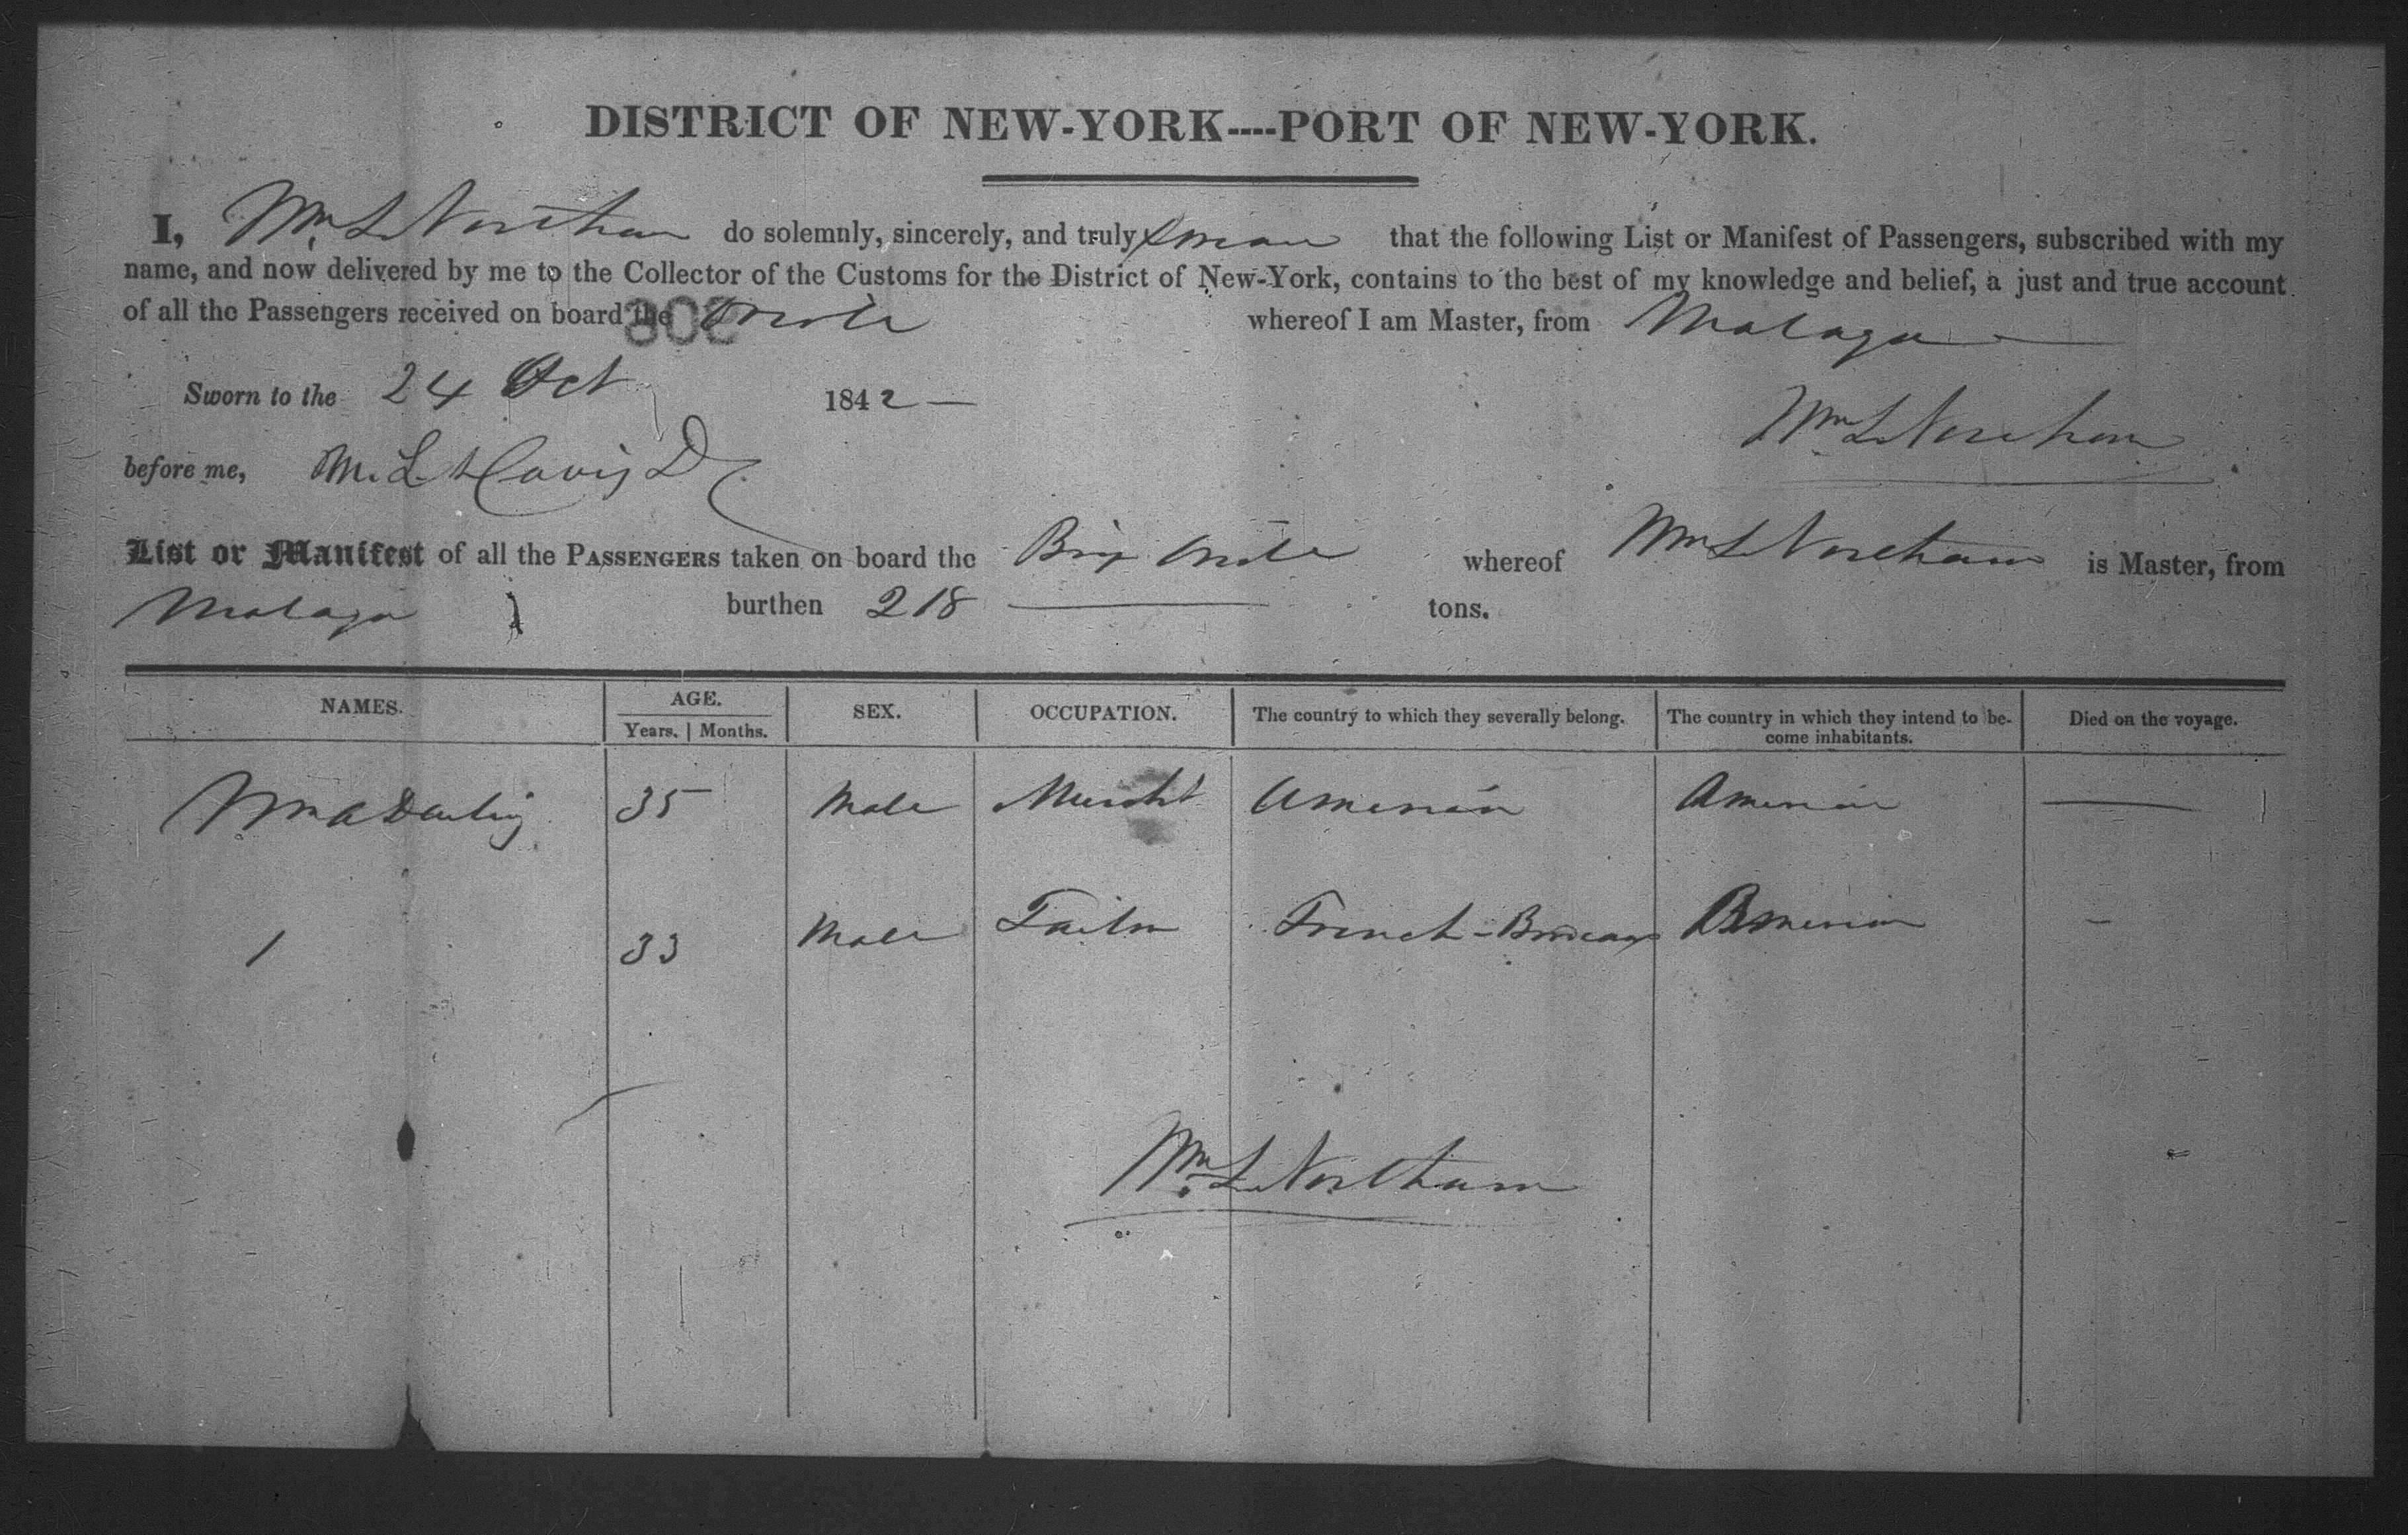 DISTRICT OF NEW-YORK----PORT OF NEW-YORK.
I, Wm. L Northam do solemnly, sincerely, and truly swear that the following List or Manifest of Passengers, subscribed with my
name, and now delivered by me to the Collector of the Customs for the District of New-York, contains to the best of my knowledge and belief, a just and true account
of all the Passengers received on board the whereof I am Master, from Malaga
Sworn to the 24 Oct 1842
before me, M. L. Davis
Wm L Northam
List or Manifest of all the PASSENGERS taken on board the Brig whereof Wm L Northam is Master, from
Malaga burthen 218 tons.
NAMES. AGE. SEX. OCCUPATION. The country to which they severally belong. The country in which they intend to be- Died on the voyage.
Years. | Months. come inhabitants.
Wm A Darling 35 Male Mercht American America —
1 33 Male Tailor French America -
Wm. L Northam